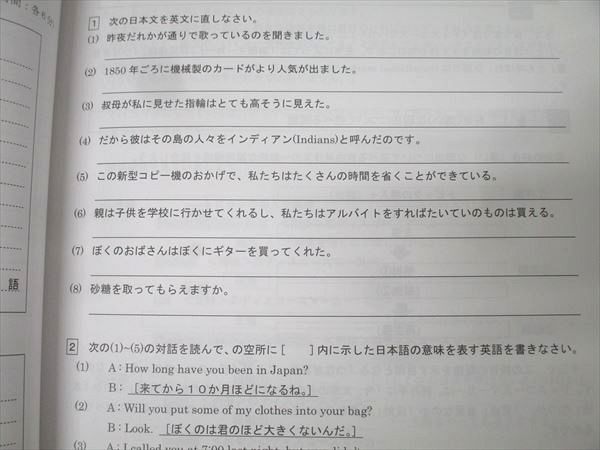 間：各6分
1 次の日本文を英文に直しなさい。
(1) 昨夜だれかが通りで歌っているのを聞きました。
(2) 1850年ごろに機械製のカードがより人気が出ました。
(3) 叔母が私に見せた指輪はとても高そうに見えた。
(4) だから彼はその島の人々をインディアン(Indians)と呼んだのです。
(5) この新型コピー機のおかげで、私たちはたくさんの時間を省くことができている。
(6) 親は子供を学校に行かせてくれるし、私たちはアルバイトをすればたいていのものは買える。
(7) ぼくのおばさんはぼくにギターを買ってくれた。
(8) 砂糖を取ってもらえますか。
語
2 次の(1)~(5)の対話を読んで、の空所に [　　] 内に示した日本語の意味を表す英語を書きなさい。
(1) A : How long have you been in Japan?
B : [来てから１０か月ほどになるね。]
(2) A : Will you put some of my clothes into your bag?
B : Look. [ぼくのは君のほど大きくないんだ。]
(3) A : I called you at 7:00 last night, but